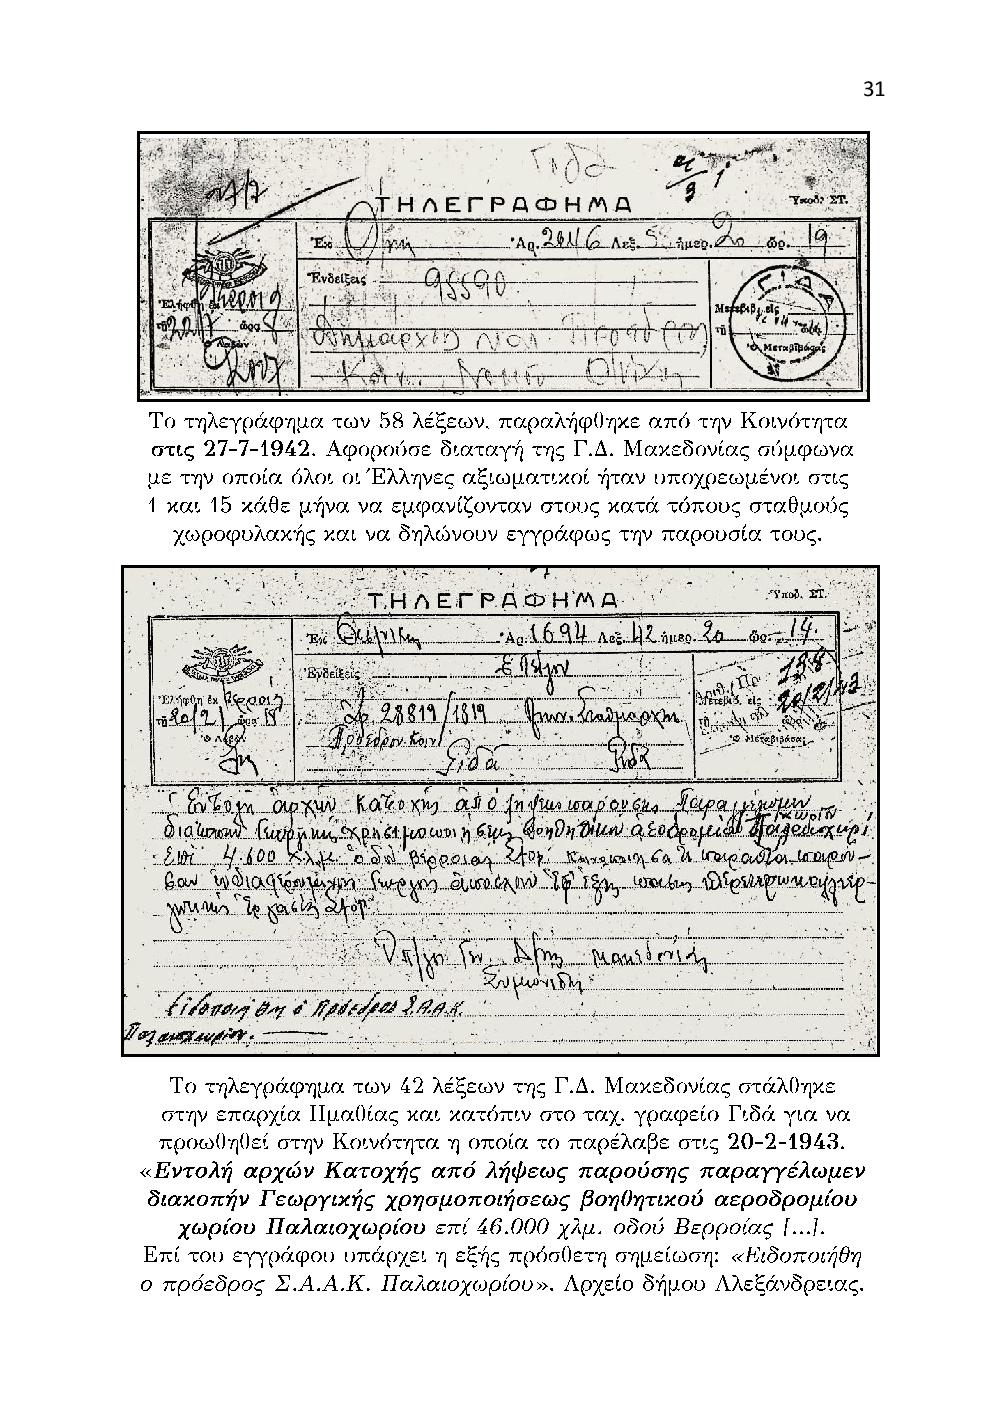 31
Γιδά
27/7
ΤΗΛΕΓΡΑΦΗΜΑ
Ὑποδ. ΣΤ.
Ἐκ Θ/νίκη Ἀρ. 2046 Λεξ. 5 ἡμερ. 20 ὥρ. 19
Ἐνδείξεις 95590
Ἐλήφθη ἐκ Βέρροια
τῇ 22/7 ὥρᾳ
Ὁ Λαβών
Μετεβιβ. εἰς
τῇ
Ὁ Μεταβιβάσας
ΓΙΔΑ
Δημαρχεῖα Νομ. Πρόεδρον
Κοιν. Νομοῦ
Το τηλεγράφημα των 58 λέξεων, παραλήφθηκε από την Κοινότητα
στις 27-7-1942. Αφορούσε διαταγή της Γ.Δ. Μακεδονίας σύμφωνα
με την οποία όλοι οι Έλληνες αξιωματικοί ήταν υποχρεωμένοι στις
1 και 15 κάθε μήνα να εμφανίζονταν στους κατά τόπους σταθμούς
χωροφυλακής και να δηλώνουν εγγράφως την παρουσία τους.
ΤΗΛΕΓΡΑΦΗΜΑ
Ὑποδ. ΣΤ.
Ἐκ Θεσ/νίκη Ἀρ. 1694 Λεξ. 42 ἡμερ. 20 ὥρ. 14
Ἐνδείξεις Ἐπεῖγον
Ἐλήφθη ἐκ Βέρροια
τῇ 20/2/ ὥρᾳ
Ὁ Λαβών
Ἀρ. 28819/1819 Σταθμάρχην
Πρόεδρον Κοιν.
Γιδά Γιδά
Ἀριθ. Πρ. 188
Μετεβιβ. εἰς 20/2/43
τῇ
Ὁ Μεταβιβάσας
Ἐντολῇ ἀρχῶν Κατοχῆς ἀπό λήψεως παρούσης Παραγγέλωμεν
διακοπήν Γεωργικῆς χρησιμοποιήσεως βοηθητικοῦ ἀεοδρομίου χωρίου Παλαιοχωρί
ἐπί 4.600 χλμ. ὁδοῦ Βερροίας Στοπ.
ἐργασίας Στοπ
Ὑπ/γός Γεν. Δ/σης Μακεδονίας
Συμωνίδης
Εἰδοποιήθη ὁ Πρόεδρος Σ.Α.Α.Κ.
Παλαιοχωρίου.
Το τηλεγράφημα των 42 λέξεων της Γ.Δ. Μακεδονίας στάλθηκε
στην επαρχία Ημαθίας και κατόπιν στο ταχ. γραφείο Γιδά για να
προωθηθεί στην Κοινότητα η οποία το παρέλαβε στις 20-2-1943.
«Εντολή αρχών Κατοχής από λήψεως παρούσης παραγγέλωμεν
διακοπήν Γεωργικής χρησμοποιήσεως βοηθητικού αεροδρομίου
χωρίου Παλαιοχωρίου επί 46.000 χλμ. οδού Βερροίας [...].
Επί του εγγράφου υπάρχει η εξής πρόσθετη σημείωση: «Ειδοποιήθη
ο πρόεδρος Σ.Α.Α.Κ. Παλαιοχωρίου». Αρχείο δήμου Αλεξάνδρειας.